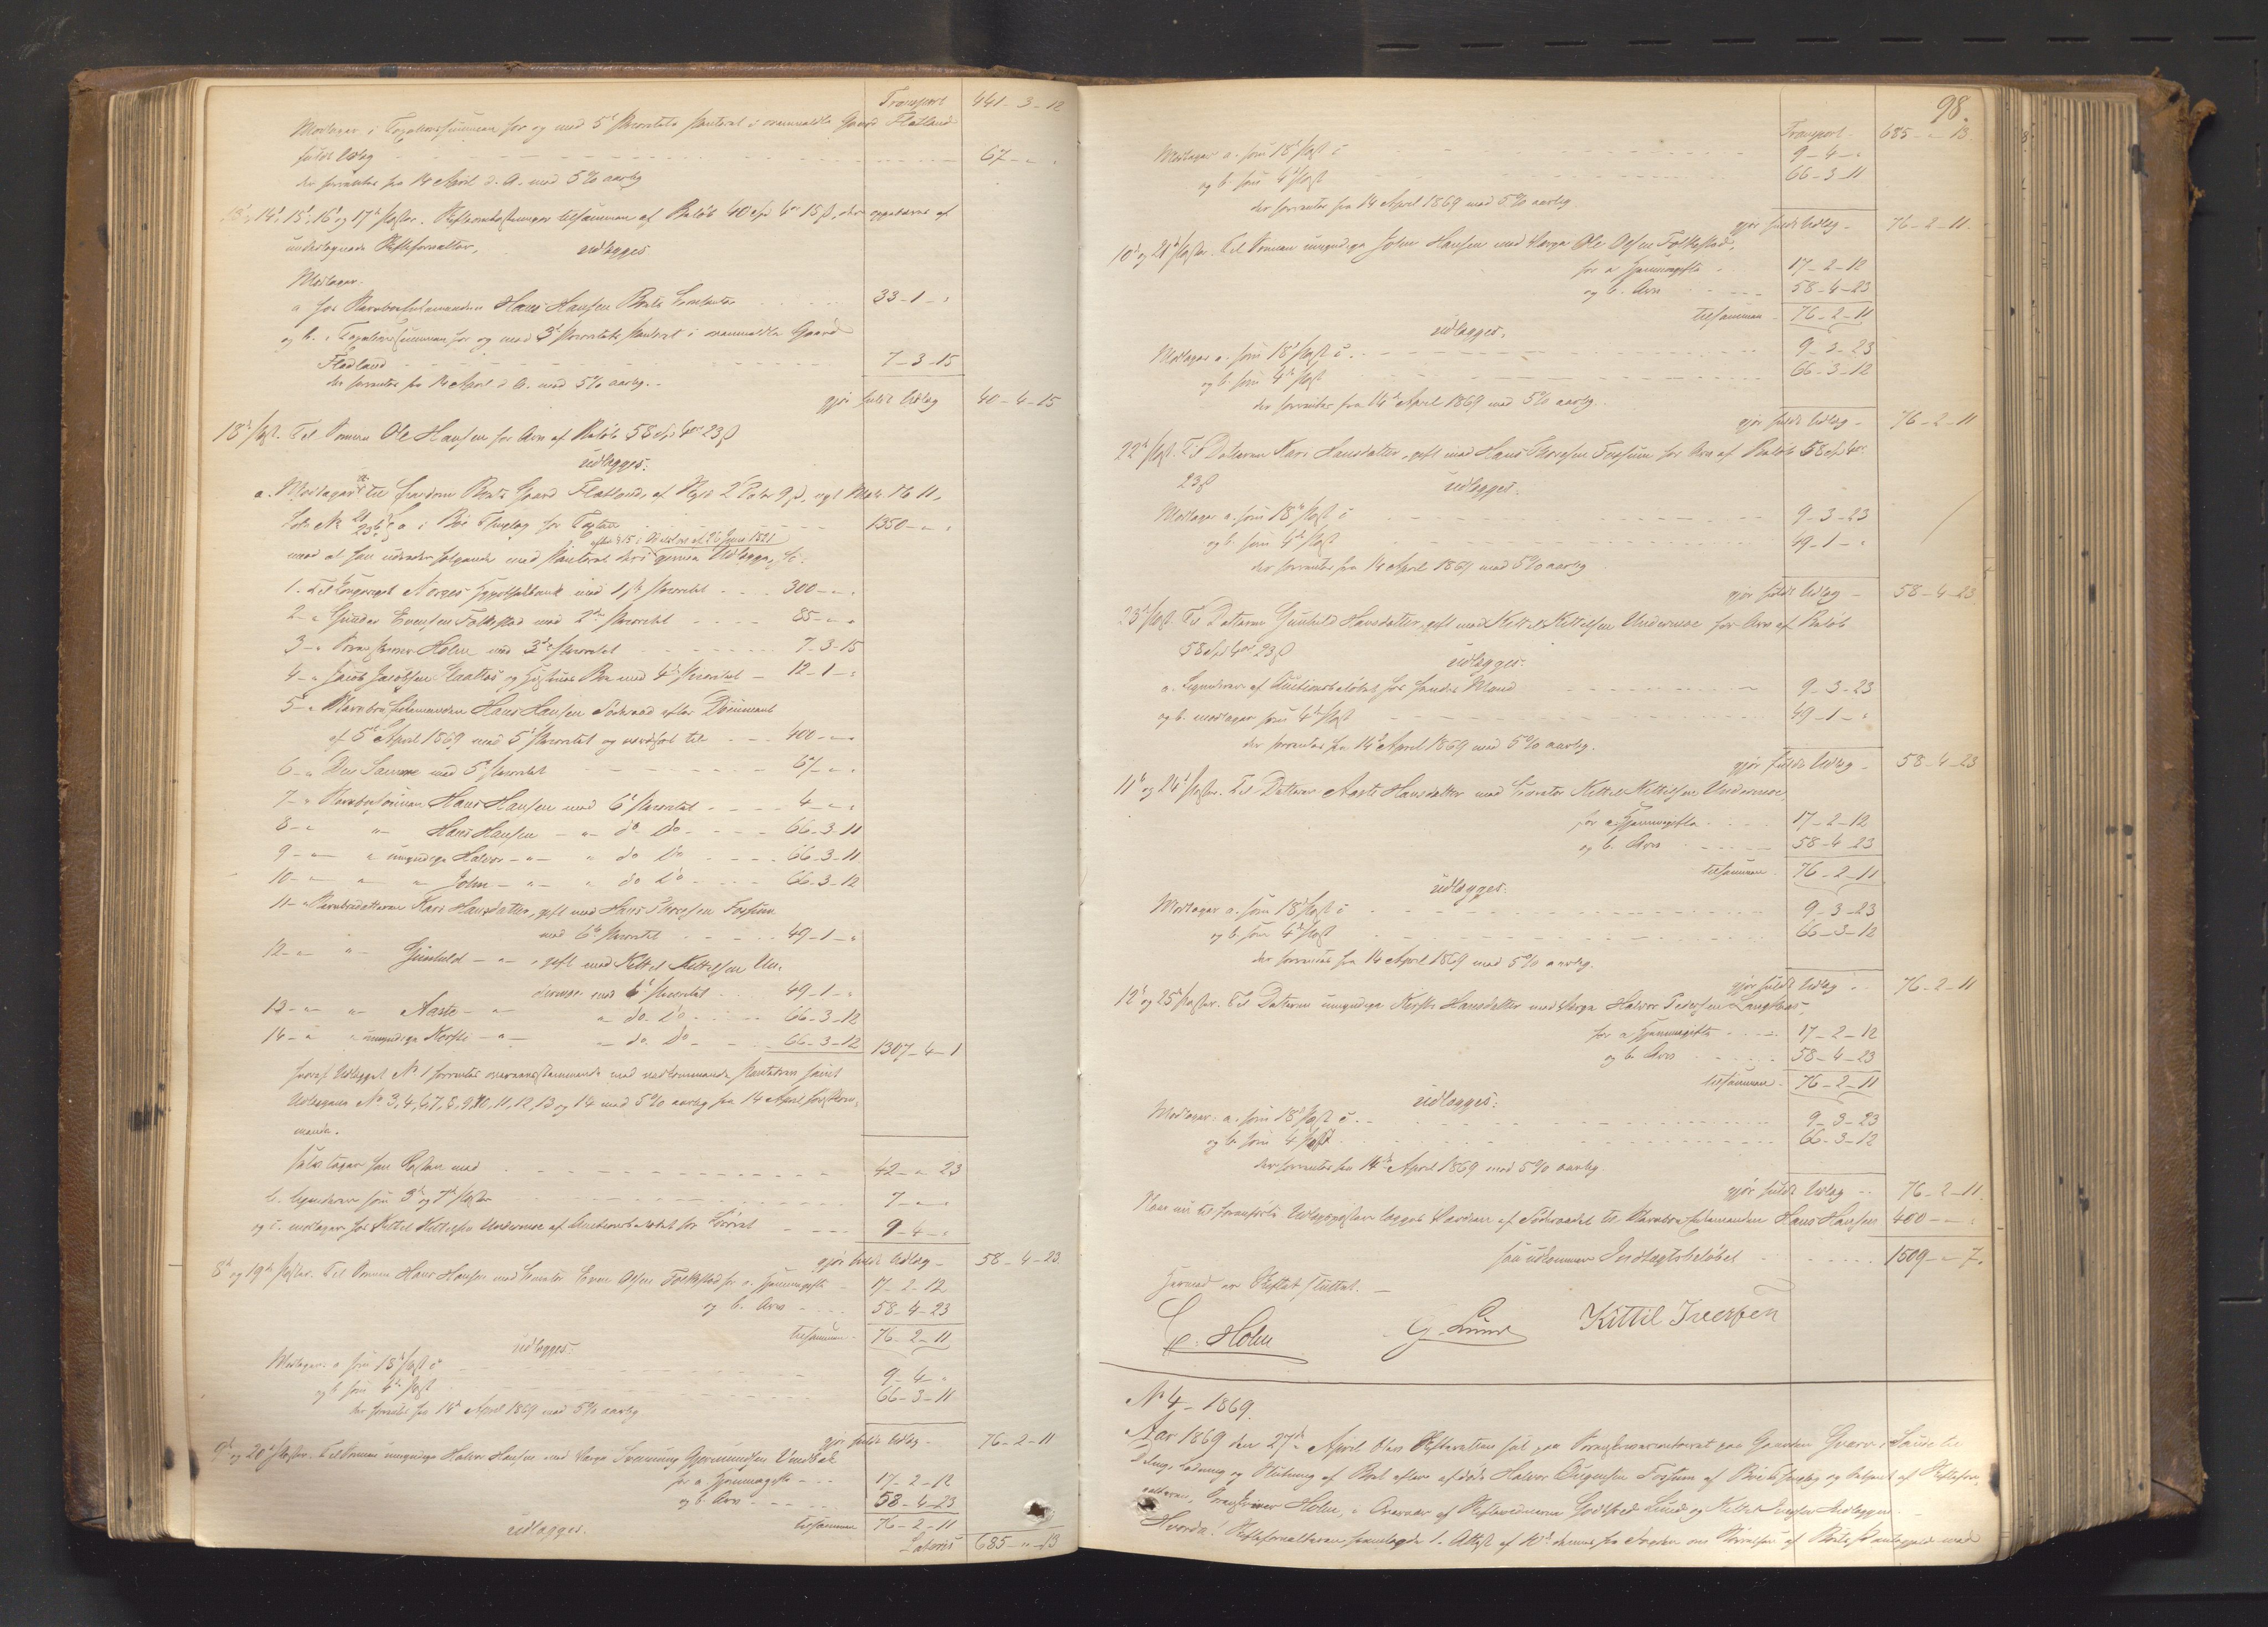 Transport 441-3-12
Modtager i Taxationssummen for og med 5te Prioritets Panteret i ovenmeldte Gaard Flatland
fuldt Udlæg 67-"-"
der forrentes fra 14 April d. A. med 5% aarlig
13de, 14de, 15de, 16de og 17de Poster. Skifteomkostninger tilsammen af Beløb 40 Spd 4 ort 15 s, der oppebæres af
undertegnede Skifteforvalter,
udlægges
Modtager.
a. hos Stervboenkemanden Hans Hansen Boets Contanter 33-1-"
og b. i Taxationssummen for og med 3de Prioritets Panteret i ovenmeldte Gaard
Flatland 7-3-15
der forrentes fra 14 April d. A. med 5% aarlig.
gjør fuldt Udlæg 40-4-15
18de Post. Til Sønnen Ole Hansen for Arv af Beløb 58 Spd 4 ort 23 s
udlægges:
a. Modtager til Eiendom Boets Gaard Flatland, af Skyld 2 Daler 9 s, nyt Matr. No 11,
Løb. No 21 23b a i Bø Thinglag for Taxten 1350-"-"
efter § 15 i Odelslov af 26 Juni 1821
mod at han udreder følgende med Panteret deri givne Udlægge,
1. Til Kongeriget Norges Hypothekbank med 1ste Prioritet 300-"-"
2-" Gunder Evensen Folkestad med 2den Prioritet 85-"-"
3-" Sorenskriver Holm med 3de Prioritet 7-3-15
4-" Jacob Jacobsen og Hustrues Bo med 4de Prioritet 12-1-"
5-" Stervboenkemanden Hans Hansen Föderaad efter Document
af 5te April 1869 med 5te Prioritet og værdsat til 400-"-"
6-" Den Samme med 5te Prioritet 67-"-"
7-" Stervbosønnen Hans Hansen med 6te Prioritet 4-"-"
8-" " Hans Hansen -"- do Do 66-3-11
9-" " umyndige Halvor -"- " do Do 66-3-11
10-" " " John -"- " do Do 66-3-12
11-" Stervbodatteren Kari Hansdatter, gift med Hans Thoresen Fossum
med 6te Prioritet 49-1-"
12-" " Gunhild -"- , gift med Kittel Kittelsen Un-
dernæse med 6te Prioritet 49-1-"
13-" " Aaste -"- " do. Do 66-3-12
14-" " umyndige Kersti -"- " do. Do 66-3-12 1307-4-1
hvoraf Udlægget No 1 forrentes overensstemmende med vedkommende Pantebrev samt
Udlæggene No 3, 4, 6, 7, 8, 9, 10, 11, 12, 13 og 14 med 5% aarlig fra 14 April førstkom-
mende.
saa tager han Resten med 42-"-23
b. ligesom som 3de og 7de Poster 7-"-"
og c. modtager hos Kittel Kittelsen Undernæse af Auctionsbeløbet for Løsøret 9-4-"
gjør fuldt Udlæg 58-4-23
8de og 19de Poster. Til Sønnen Hans Hansen med Curator Even Olsen Folkestad for a. Hjemmegifte 17-2-12
og b. Arv 58-4-23
tilsammen 76-2-11
udlægges:
Modtager: a. som 18de Post c 9-4-"
og b. som 4de Post 66-3-11
der forrentes fra 14de April 1869 med 5% aarlig
gjør fuldt Udlæg 76-2-11
9de og 20de Poster. Til Sønnen umyndige Halvor Hansen med Værge Svenning Gjermundsen Vindbæk
for a. Hjemmegifte 17-2-12
og b. Arv 58-4-23
tilsammen 76-2-11
udlægges.
Lateris 685-"-13
98.
Transport 685-"-13
Modtager a. som 18de Post c 9-4-"
og b. som 4de Post 66-3-11
der forrentes fra 14 April 1869 med 5% aarlig
gjør fuldt Udlæg 76-2-11
10de og 21de Poster. Til Sønnen umyndige John Hansen med Værge Ole Olsen Folkestad,
for a. Hjemmegifte 17-2-12
og b. Arv 58-4-23
tilsammen 76-2-11
udlægges.
Modtager a. som 18de Post c 9-3-23
og b. som 4de Post 66-3-12
der forrentes fra 14de April 1869 med 5% aarlig.
gjør fuldt Udlæg 76-2-11
22de Post. Til Datteren Kari Hansdatter, gift med Hans Thoresen Fossum for Arv af Beløb 58 Spd 4 ort
23 s
udlægges:
Modtager a. som 18de Post c 9-3-23
og b. som 4de Post 49-1-"
der forrentes fra 14 April 1869 med 5% aarlig
gjør fuldt Udlæg 58-4-23
23de Post. Til Datteren Gunhild Hansdatter, gift med Kittel Kittelsen Undernæse for Arv af Beløb
58 Spd 4 ort 23 s
udlægges:
a. Liqviderer af Auctionsbeløbet hos hendes Mand 9-3-23
og b. modtager som 4de Post 49-1-"
der forrentes fra 14de April 1869 med 5% aarlig.
gjør fuldt Udlæg 58-4-23
11te og 24de Poster. Til Datteren Aaste Hansdatter med Curator Kittel Kittelsen Undernæse,
for a. Hjemmegifte 17-2-12
og b. Arv 58-4-23
tilsammen 76-2-11
udlægges:
Modtager a. som 18de Post c 9-3-23
og b. som 4de Post 66-3-12
der forrentes fra 14 April 1869 med 5% aarlig.
gjør fuldt Udlæg 76-2-11
12te og 25de Poster. Til Datteren umyndige Kersti Hansdatter med Værge Halvor Pedersen Langkaas,
for a. Hjemmegifte 17-2-12
og b. Arv 58-4-23
tilsammen 76-2-11
udlægges:
Modtager: a. som 18de Post c. 9-3-23
og b. som 4de Post 66-3-12
der forrentes fra 14de April 1869 med 5% aarlig.
gjør fuldt Udlæg 76-2-11.
Naar nu til foranførte Udlægsposter lægges Værdien af Föderaadet til Stervboenkemanden Hans Hansen 400-"-"
saa udkommer Indtægtsbeløbet 1509-"-7.
Hermed er Skiftet sluttet.
Holm G. Lund Kittil Iversen
No 4 - 1869.
Aar 1869 den 27de April blev Skifteretten sat paa Sorenskrivercontoret paa Gaarden Gvarv i Saude til
Deling, Lodning og Slutning af Boet efter afdøde Halvor Fossum af Bø Thinglag og betjent af Skiftefor-
valteren, Sorenskriver Holm, i Overvær af Skiftevidnerne Godtfred Lund og Kittel Iversen
Hvorda: Skifteforvalteren fremlagde 1. Attest af dennes fra Presten om af Bøe Præstegjeld med